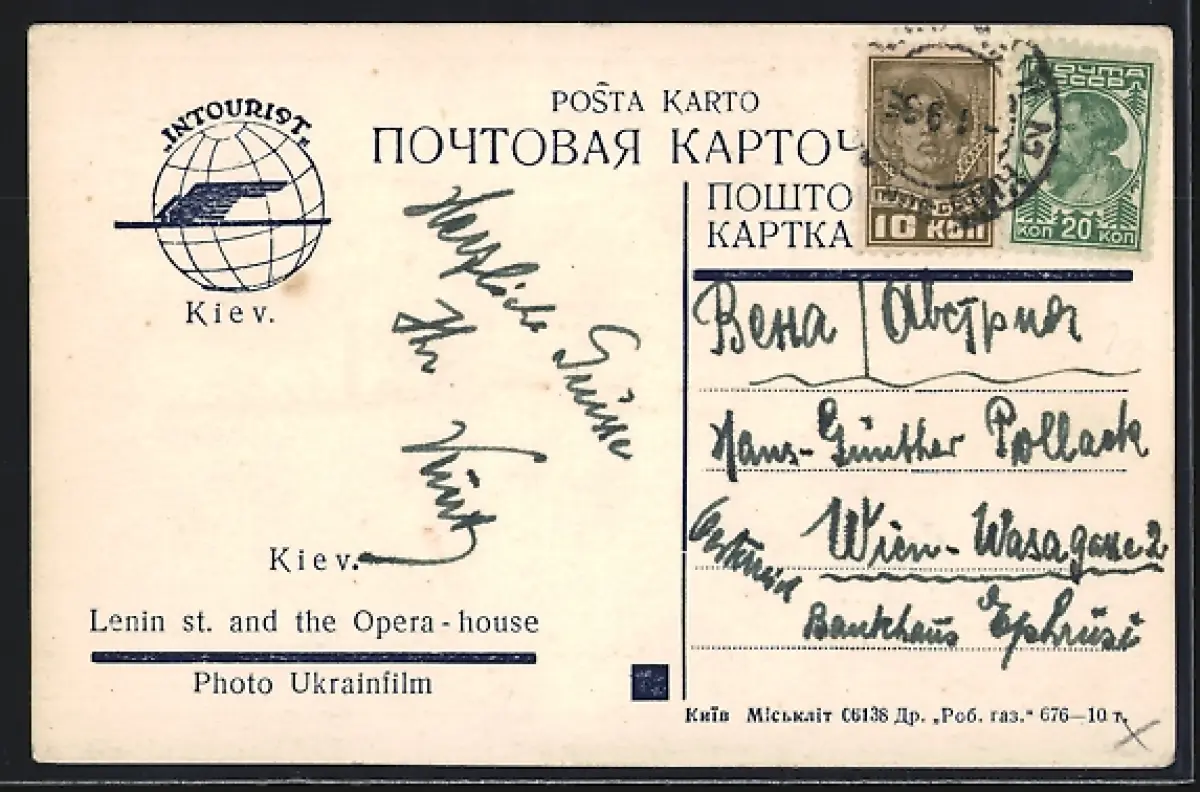 „INTOURIST„
Kiev.
POŜTA KARTO
ПОЧТОВАЯ КАРТОЧ
ПОШТО
КАРТКА
ПОЧТА
СССР
10 КОП
КОП 20 КОП
Herzliche Grüsse
Ihr
Kurt
Вена / Австрия
Hans-Günther Pollack
Wien - Wasagasse 2
Oesterreich
Bankhaus Ephrusi
Kiev.
Lenin st. and the Opera-house
Photo Ukrainfilm
Київ Міськліт 06138 Др. „Роб. газ.“ 676—10 т.